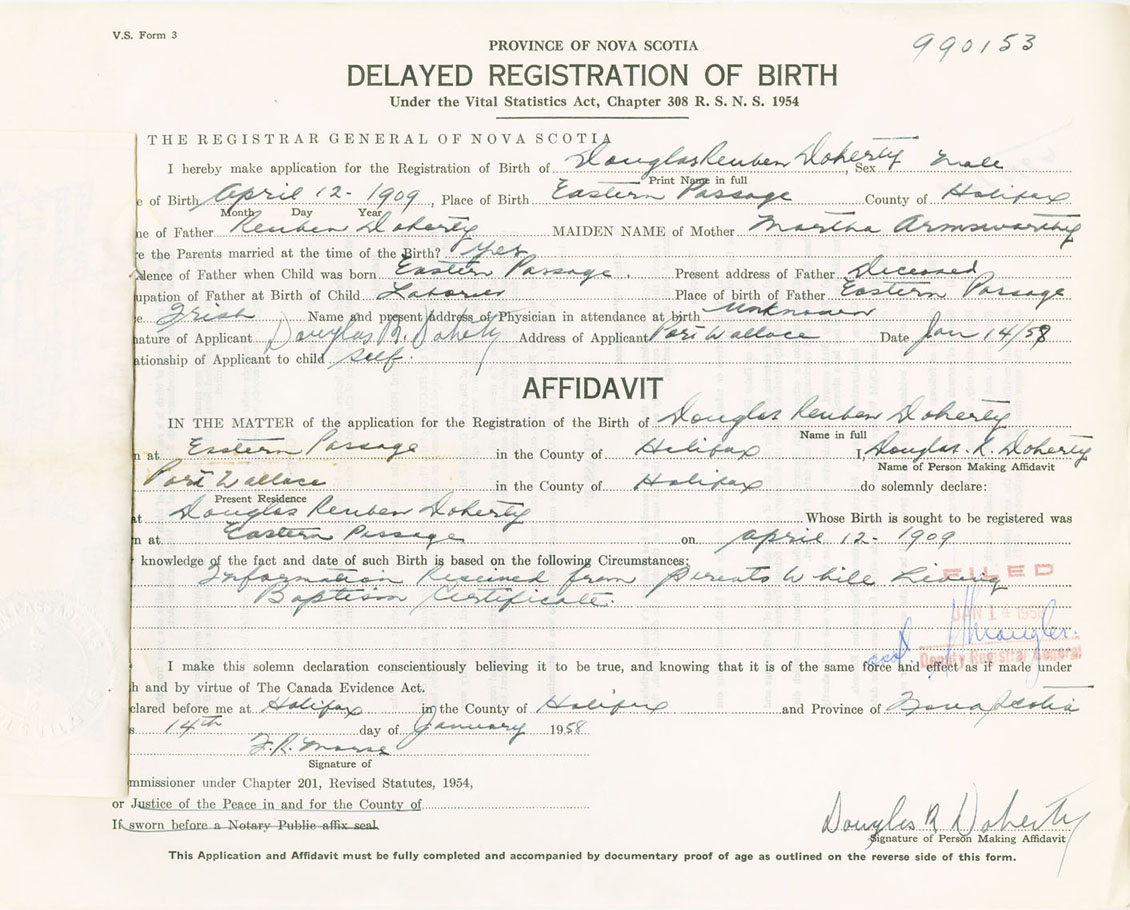 V.S. Form 3
990153
PROVINCE OF NOVA SCOTIA
DELAYED REGISTRATION OF BIRTH
Under the Vital Statistics Act, Chapter 308 R. S. N. S. 1954
THE REGISTRAR GENERAL OF NOVA SCOTIA
I hereby make application for the Registration of Birth of Douglas Reuben Doherty, Sex male
Print Name in full
e of Birth April 12- 1909, Place of Birth Eastern Passage County of Halifax
Month Day Year
ne of Father Reuben Doherty MAIDEN NAME of Mother Martha Armsworthy
re the Parents married at the time of the Birth? Yes
dence of Father when Child was born Eastern Passage. Present address of Father deceased
upation of Father at Birth of Child Laborer Place of birth of Father Eastern Passage
e Irish Name and present address of Physician in attendance at birth unknown
nature of Applicant Douglas R. Doherty Address of Applicant Port Wallace Date Jan 14/58
ationship of Applicant to child self.
AFFIDAVIT
IN THE MATTER of the application for the Registration of the Birth of Douglas Reuben Doherty
Name in full
n at Eastern Passage in the County of Halifax I, Douglas. R. Doherty
Name of Person Making Affidavit
Port Wallace in the County of Halifax do solemnly declare:
Present Residence
at Douglas Reuben Doherty Whose Birth is sought to be registered was
n at Eastern Passage on april 12- 1909
knowledge of the fact and date of such Birth is based on the following Circumstances:
Information Received from parents While Living
FILED
Baptism Certificate.
JAN 14 1958
asst.
Deputy Registrar General
I make this solemn declaration conscientiously believing it to be true, and knowing that it is of the same force and effect as if made under
h and by virtue of The Canada Evidence Act.
clared before me at Halifax in the County of Halifax and Province of Nova Scotia
s 14th day of January 1958
F. R. Morse
Signature of
mmissioner under Chapter 201, Revised Statutes, 1954,
or Justice of the Peace in and for the County of
If sworn before a Notary Public affix seal
Douglas R Doherty
Signature of Person Making Affidavit
This Application and Affidavit must be fully completed and accompanied by documentary proof of age as outlined on the reverse side of this form.